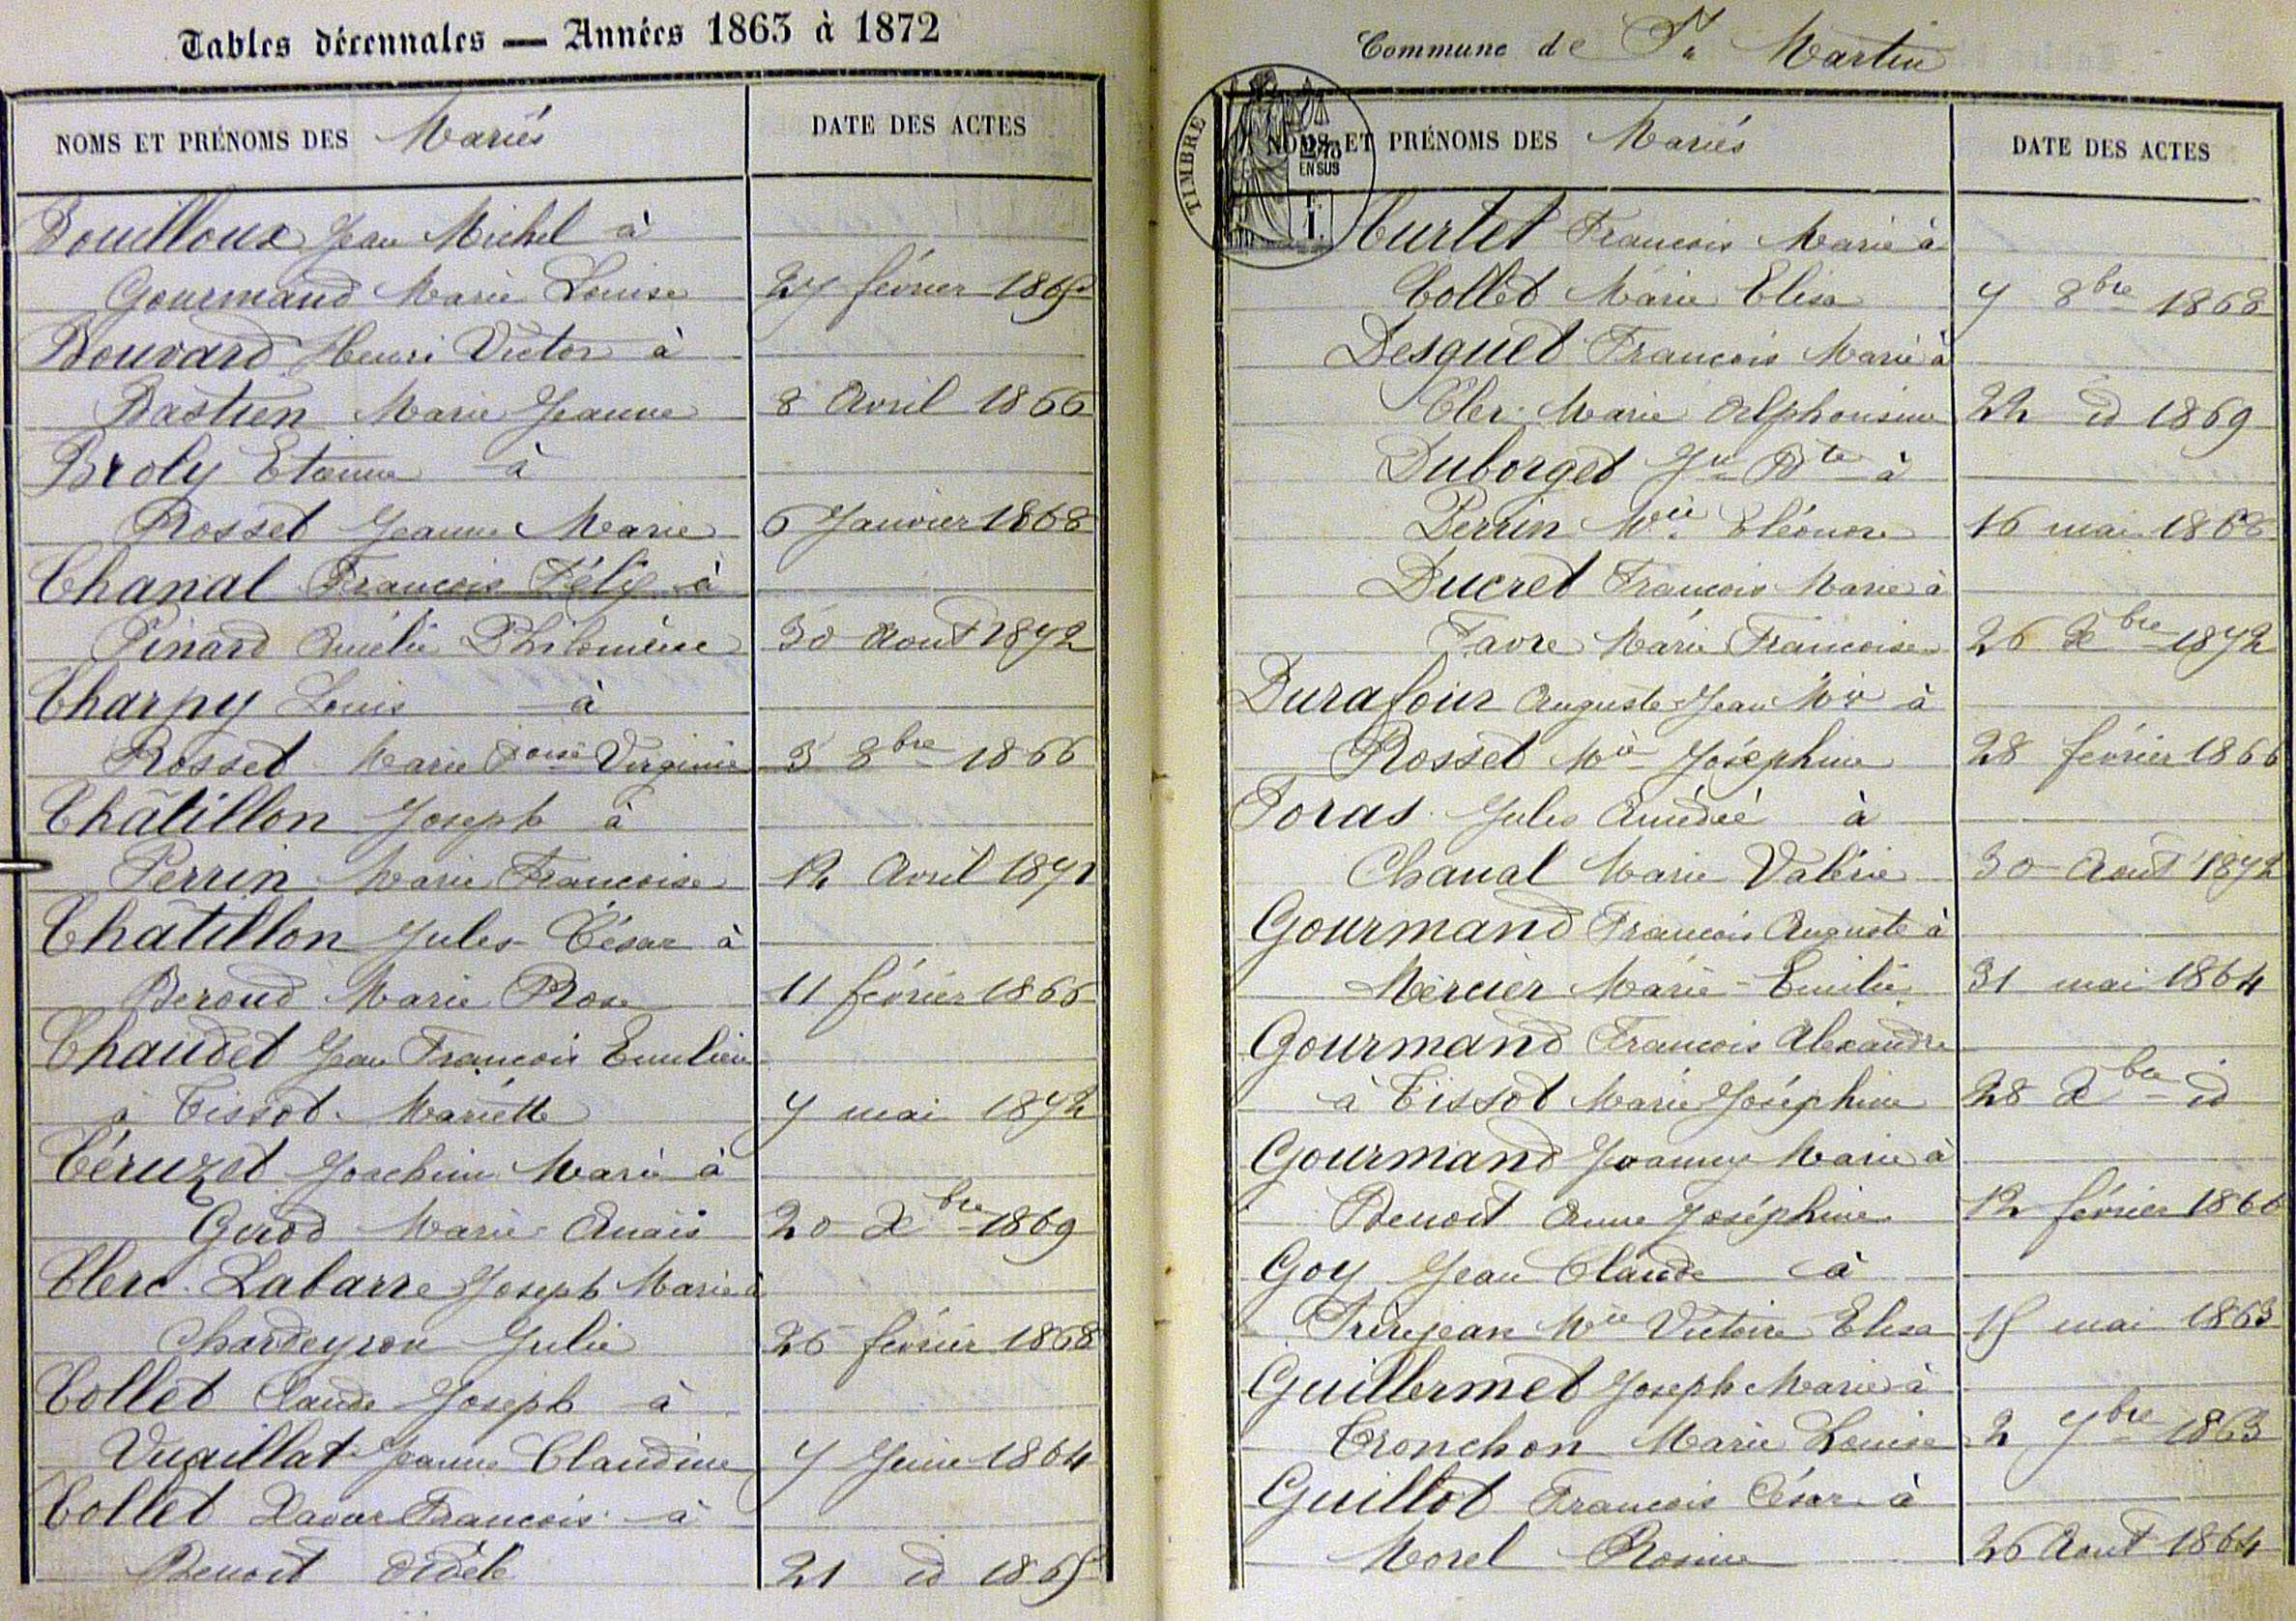 Tables décennales — Années 1863 à 1872
NOMS ET PRÉNOMS DES Mariés
DATE DES ACTES
Bouilloux Jean Michel à
Gourmand Marie Louise 27 février 1865
Bouvard Henri Victor à
Bastien Marie Jeanne 8 Avril 1866
Broly Etienne à
Rosset Jeanne Marie 6 Janvier 1868
Chanal François Félix à
Pinard Amélie Philomène 30 Aout 1872
Charpy Louis à
Rosset Marie Foise Virginie 3 8bre 1866
Châtillon Joseph à
Perrin Marie Françoise 12 Avril 1871
Châtillon Jules César à
Beroud Marie Rose 11 février 1866
Chaudet Jean François Emilien
à Tissot Mariette 7 mai 1872
Céruzet Joachim Marie à
Girod Marie Anaïs 20 Xbre 1869
Clerc-Labarre Joseph Marie à
Chardeyron Julie 26 février 1868
Collet Claude Joseph à
Vuaillat Jeanne Claudine 7 Juin 1864
Collet Xavier François à
Benoit Adèle 21 id 1865
Commune de St Martin
TIMBRE
2/10
EN SUS
F.
1.
NOMS ET PRÉNOMS DES Mariés
DATE DES ACTES
Curtet François Marie à
Collet Marie Elisa 7 8bre 1868
Desquet François Marie à
Cler Marie Alphonsine 22 id 1869
Duborget Jn Bte à
Perrin Mie Eléonore 16 mai 1868
Ducret François Marie à
Favre Marie Françoise 26 Xbre 1872
Durafour Auguste Jean Mie à
Rosset Mie Joséphine 28 février 1866
Foras Jules Amédée à
Chanal Marie Valérie 30 Août 1872
Gourmand François Auguste à
Mercier Marie-Emilie 31 mai 1864
Gourmand François Alexandre
à Tissot Marie Joséphine 28 Xbre id
Gourmand Joanny Marie à
Benoit Anne Joséphine 12 février 1866
Goy Jean Claude à
Frèrejean Mie Victoire Elisa 15 mai 1863
Guillermet Joseph Marie à
Tronchon Marie Louise 2 7bre 1863
Guillot François César à
Morel Rosine 26 Aout 1864